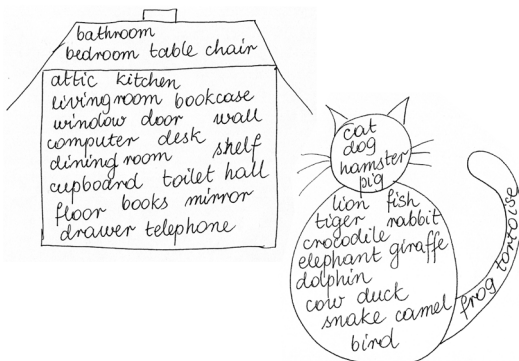 bathroom
bedroom table chair
attic kitchen
livingroom bookcase
window door wall
computer desk shelf
dining room
cupboard toilet hall
floor books mirror
drawer telephone
cat
dog
hamster
pig
lion fish
tiger rabbit
crocodile
elephant giraffe
dolphin
cow duck
snake camel
bird
frog tortoise